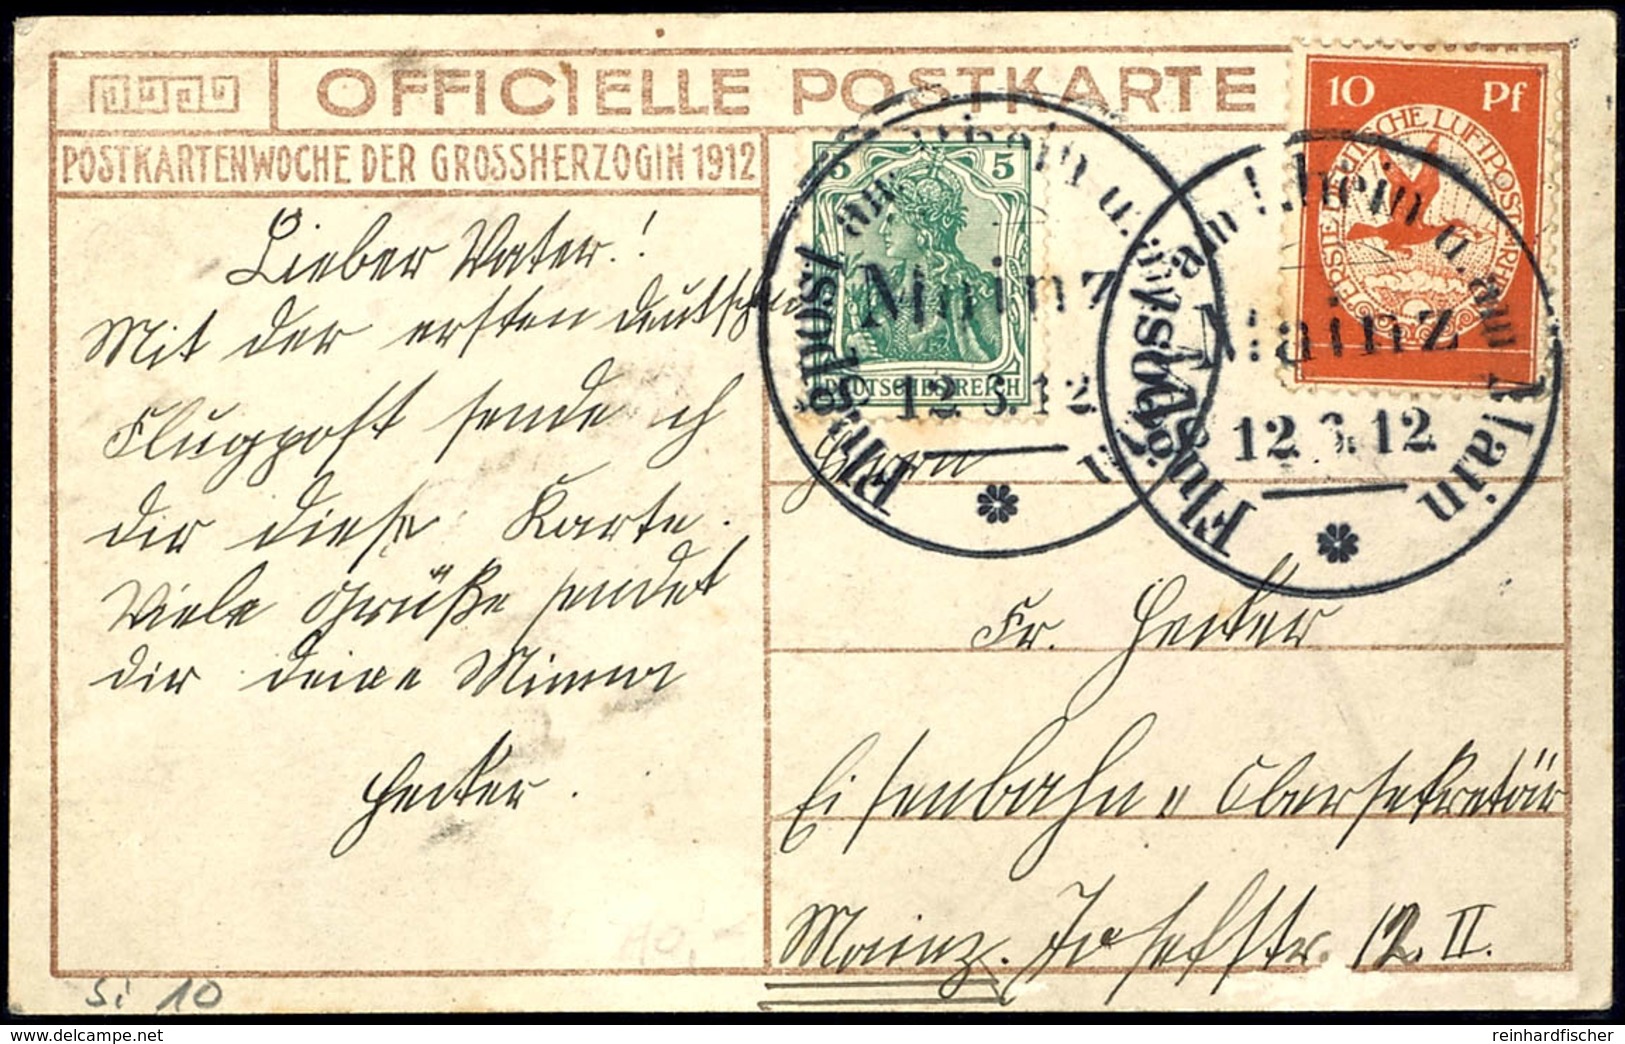 OFFICIELLE POSTKARTE
POSTKARTENWOCHE DER GROSSHERZOGIN 1912
Lieber Vater!
Mit der ersten deutschen
Flugpost sende ich
dir diese Karte.
Viele Grüße sendet
dir deine Minna
Hecker.
5 5
DEUTSCHES REICH
10 Pf
ERSTE DEUTSCHE LUFTPOST AM RHEIN
Flugpost am Rhein u.
Mainz
12 6. 12
Flugpost am Rhein u. am Main
Mainz
12 6. 12
Herrn
Fr. Hecker
Eisenbahn = Obersekretär
Mainz. Josefstr. 12. II.
Si 10
40,-
delcampe.net
reinhardfischer